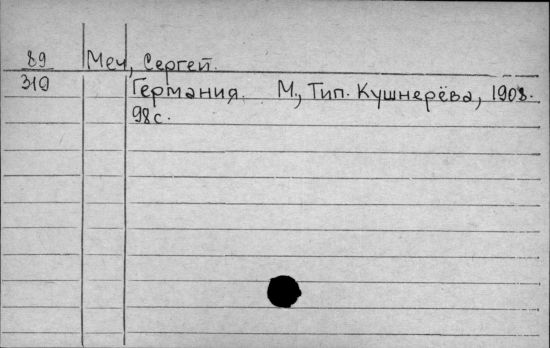 89 Меч, Сергей.
310 Германия. М., Тип. Кушнерёва, 1908.
98 с.